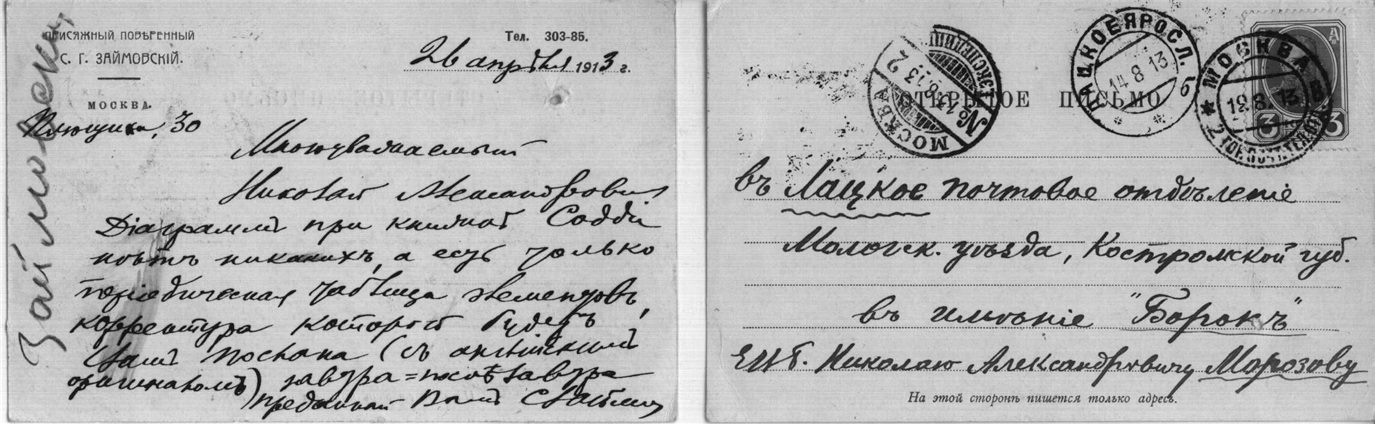 Займовскій
ПРИСЯЖНЫЙ ПОВѢРЕННЫЙ
С. Г. ЗАЙМОВСКІЙ.
МОСКВА.
Плющиха, 30
Тел. 303-85.
26 апрѣля 1913 г.
Многоуважаемый
Николай Александровичъ
Діаграммъ при книжкѣ Содди
нѣтъ никакихъ, а есть только
періодическая таблица элементовъ,
корректура которой будетъ
Вамъ послана (съ англійскимъ
оригиналомъ) завтра=послѣзавтра
Преданный Вамъ
ОТКРЫТОЕ ПИСЬМО
МОСКВА 2
ЭКСПЕДИЦІЯ
13.8.13
ЛАЦКОЕ ЯРОСЛ.
14.8.13
б
МОСКВА
12.8.13
3 3
въ Лацкое почтовое отдѣленіе
Мологск. уѣзда, Костромской губ.
въ имѣніе "Борокъ"
ЕШБ. Николаю Александровичу Морозову
На этой сторонѣ пишется только адресъ.